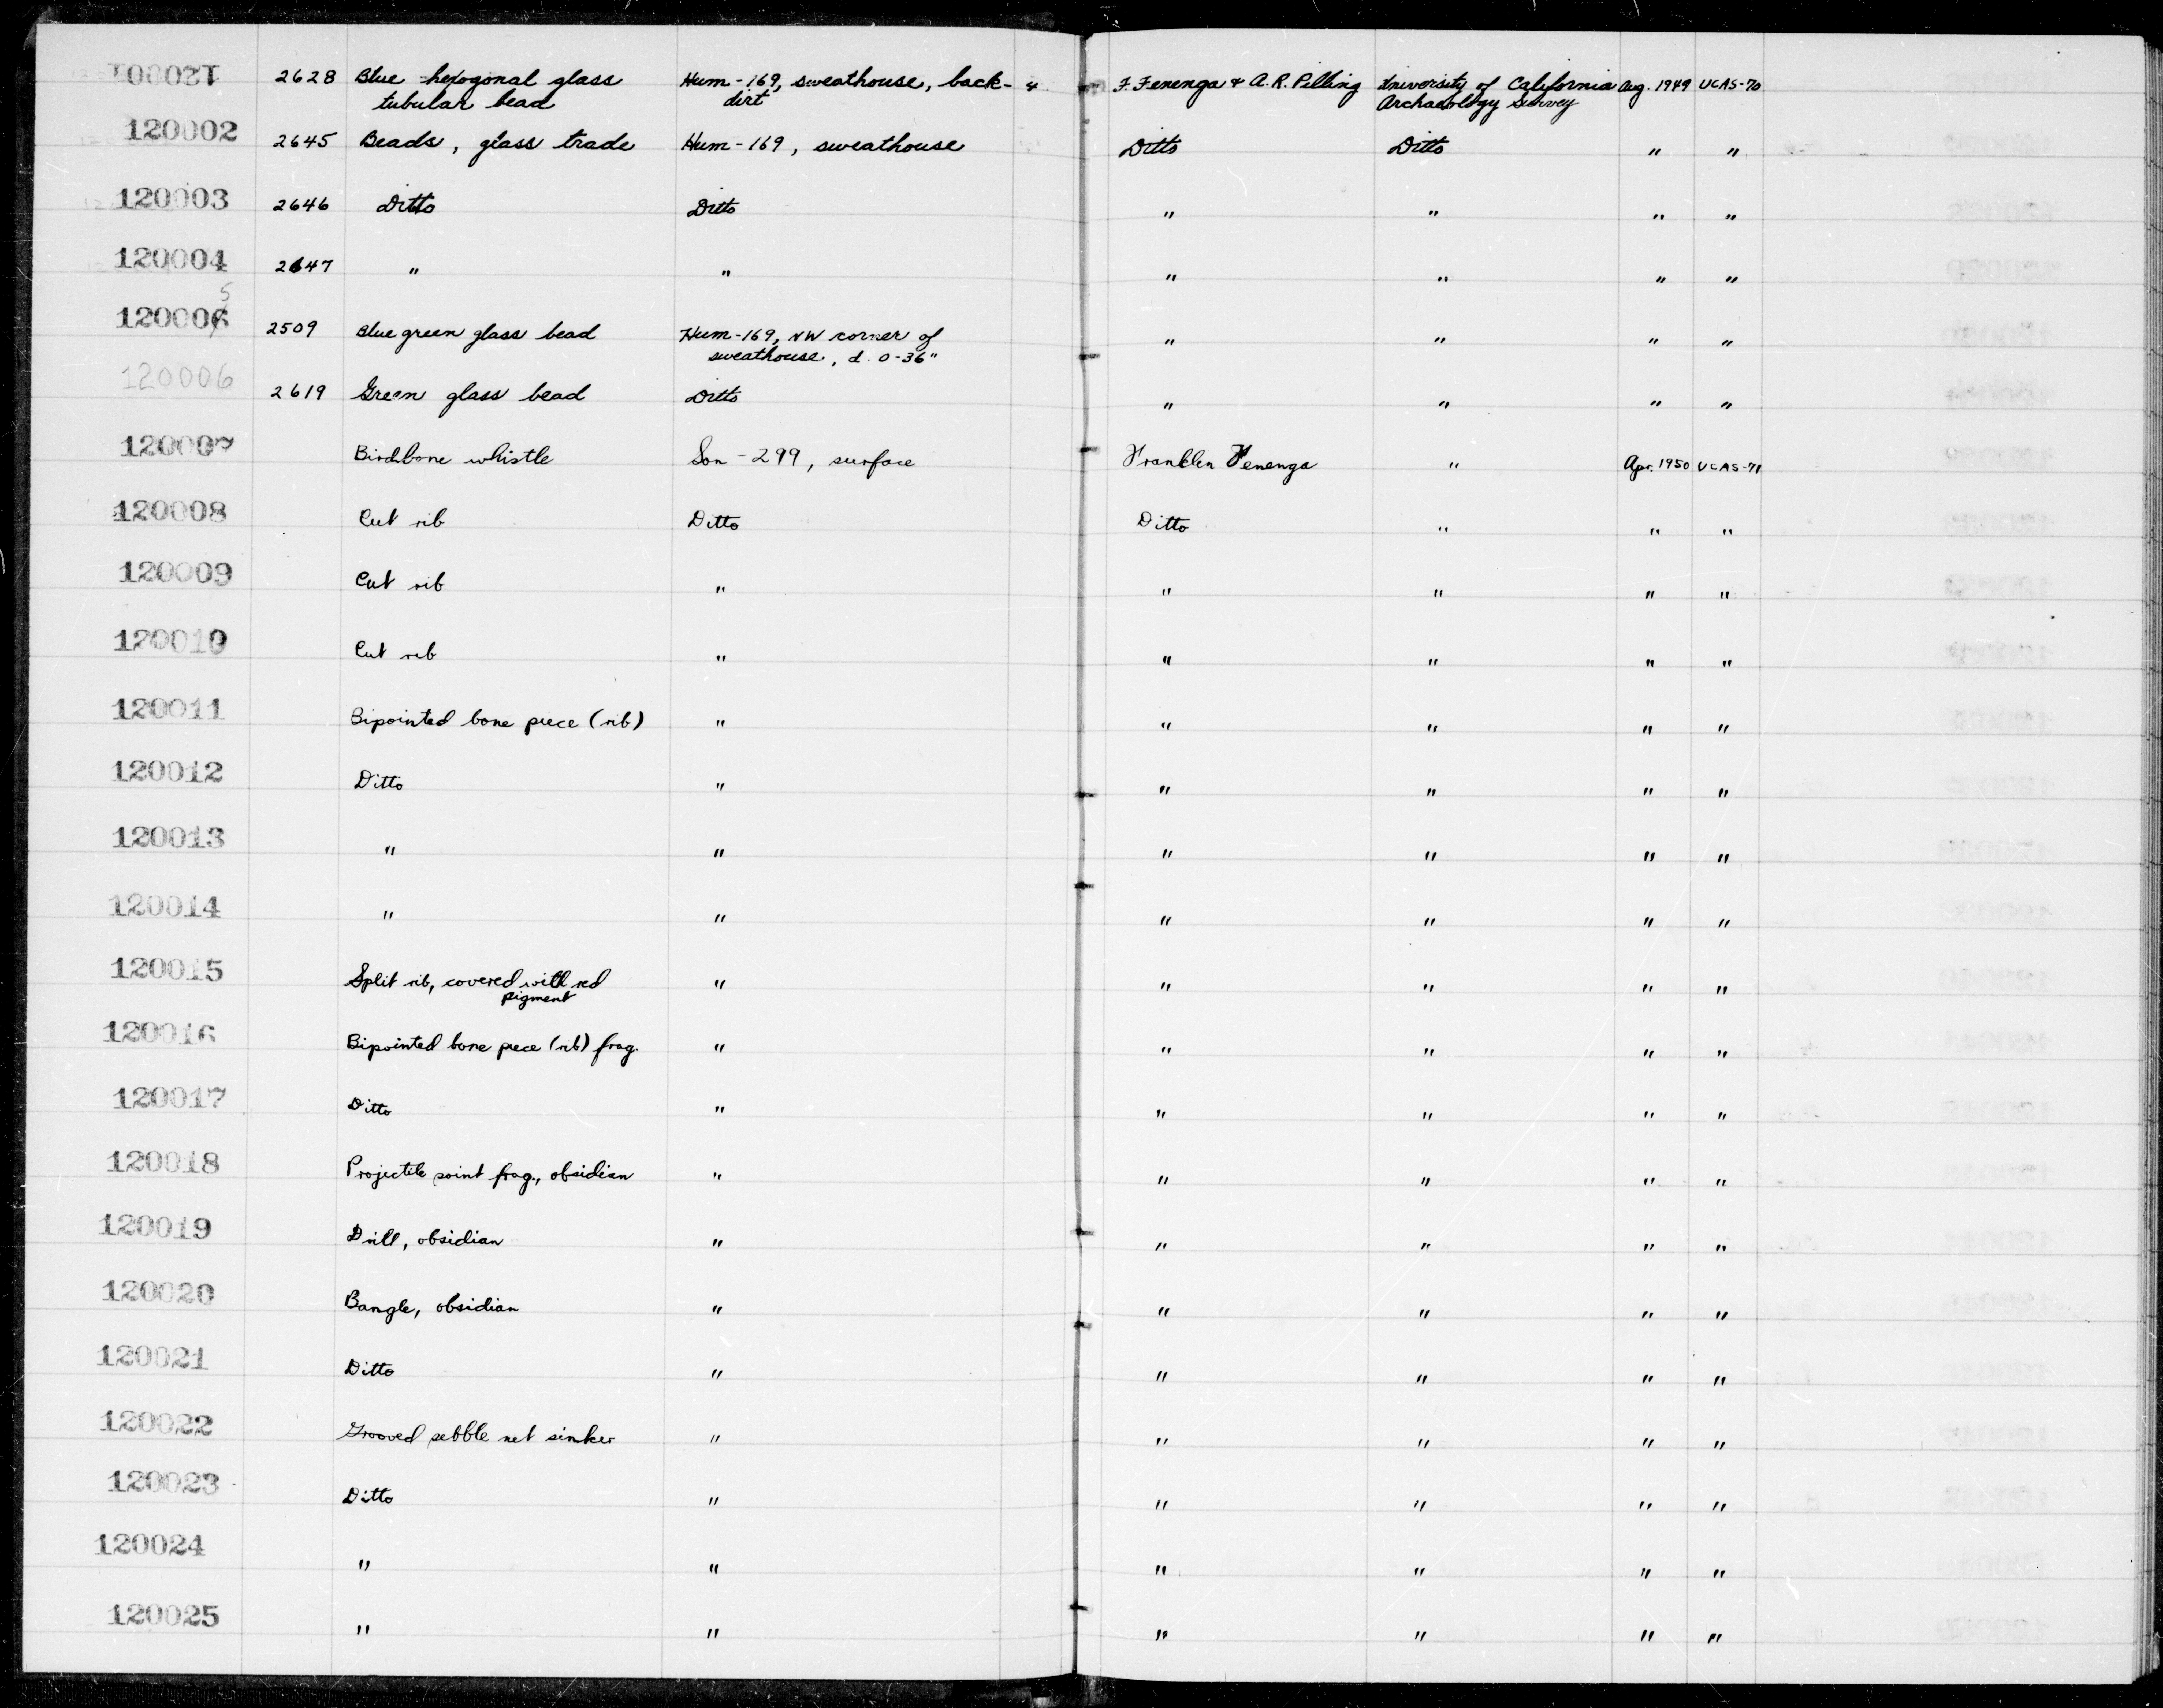 120001 2628 Blue hexogonal glass Hum-169, sweathouse, back- 4 F. Fenenga & A.R. Pilling University of California Aug. 1949 UCAS-70
tubular bead dirt Archaeology Survey
120002 2645 Beads, glass trade Hum-169, sweathouse Ditto Ditto " "
120003 2646 Ditto Ditto " " " "
120004 2647 " " " " " "
5
120006 2509 Blue green glass bead Hum-169, NW corner of " " " "
sweathouse, d. 0-36"
120006 2619 Green glass bead Ditto " " " "
120007 Birdbone whistle Son-299, surface Franklin Fenenga " Apr. 1950 UCAS-71
120008 Cut rib Ditto Ditto " " "
120009 Cut rib " " " " "
120010 Cut rib " " " " "
120011 Bipointed bone piece (rib) " " " " "
120012 Ditto " " " " "
120013 " " " " " "
120014 " " " " " "
120015 Split rib, covered with red " " " " "
pigment
120016 Bipointed bone piece (rib) frag. " " " " "
120017 Ditto " " " " "
120018 Projectile point frag., obsidian " " " " "
120019 Drill, obsidian " " " " "
120020 Bangle, obsidian " " " " "
120021 Ditto " " " " "
120022 Grooved pebble net sinker " " " " "
120023 Ditto " " " " "
120024 " " " " " "
120025 " " " " " "